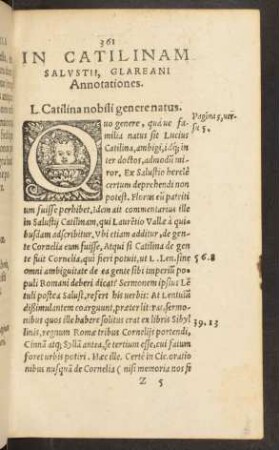 361
IN CATILINAM
SALVSTII, GLAREANI
Annotationes.
L. Catilina nobili genere natus.
Pagina 5, uer-
su 5.
Quo genere, quáue fa-
milia natus sit Lucius
Catilina, ambigi, idq; in
ter doctos, admodũ mi-
ror. Ex Salustio herclè
certum deprehendi non
potest. Florus eũ patriti
um fuisse perhibet, idem ait commentarius ille
in Salustij Catilinam, qui Laurētio Vallæ à qui-
busdam adscribitur. Vbi etiam additur, de gen-
te Cornelia eum fuisse, Atqui si Catilina de gen
te fuit Cornelia, qui fieri potuit, ut L. Len. sine
56.8
omni ambiguitate de ea gente sibi imperiũ po-
puli Romani deberi dicat? Sermonem ipsius Lē
tuli postea Salust. refert his uerbis: At Lentulũ
dißimulantem coarguunt, præter literas, sermo-
nibus quos ille habere solitus erat ex libris Sibyl
linis, regnum Romæ tribus Cornelijs portendi,
39.13
Cinnã atq; Syllã antea, se tertium esse, cui fatum
foret urbis potiri. Hæc ille. Certè in Cic. oration
nibus nusquã de Cornelia (nisi memoria nos fe
Z 5